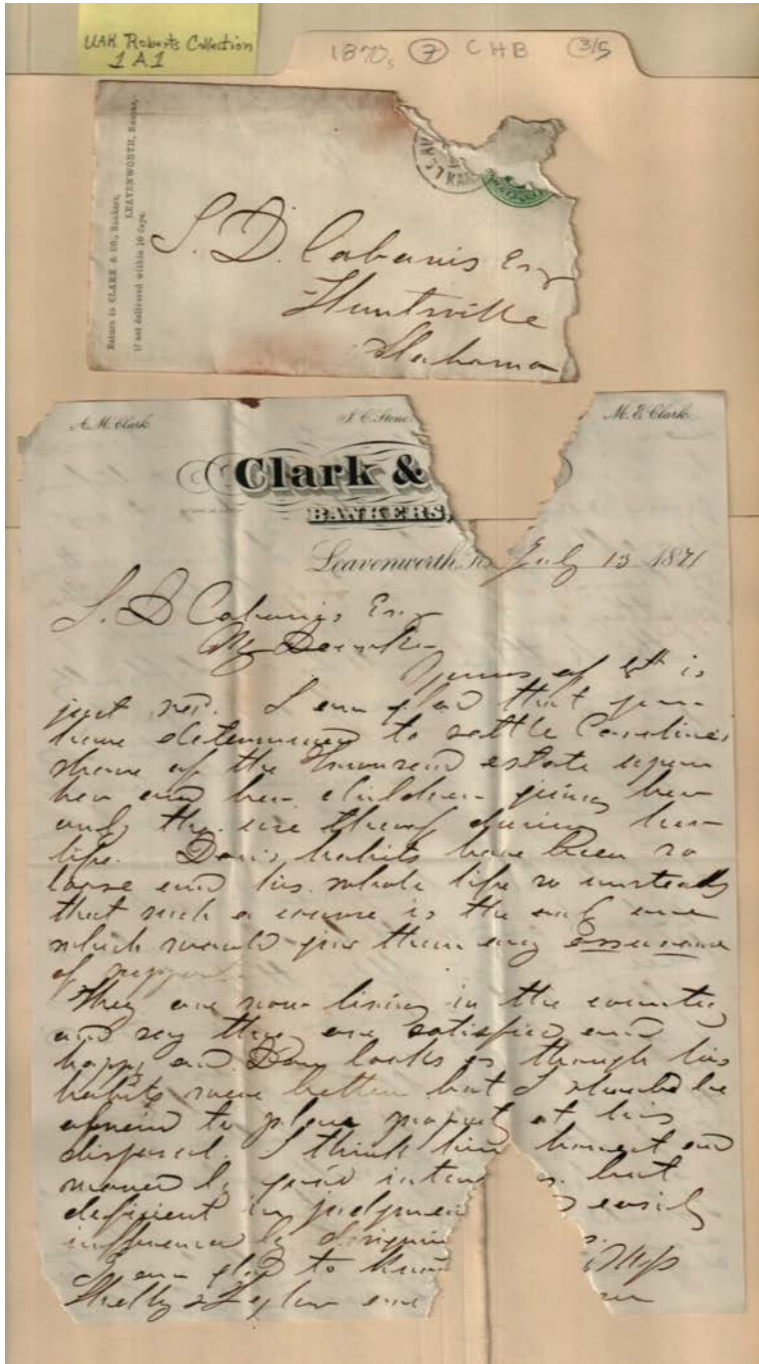 UAH Roberts Collection
1A1
1870s 7 CHB 3/5
Return to CLARK & CO., Bankers,
LEAVENWORTH, Kansas,
if not delivered within 10 days.
KAN
S. D. Cabanis Esq
Huntsville
Alabama
A. M. Clark J. C. Stone M. E. Clark
Clark &
BANKERS,
Leavenworth, July 13 1871
S. D Cabanis Esq
My Dear Sir
Yours of 8th is
just recd. I am glad that you
have determined to settle Carolines
share of the Townsend estate upon
her and her children giving her
only the use thereof during her
life. Dons habits have been so
loose and his whole life so unsteady
that such a course is the only one
which would give them any assurance
of support.
They are now living in the country
and say they are satisfied and
happy and Don looks as though his
habits were better but I should be
afraid to place property at his
disposal. I think him honest and
moved by good but
deficient in easily
influenced by
I am glad to
Shelby &